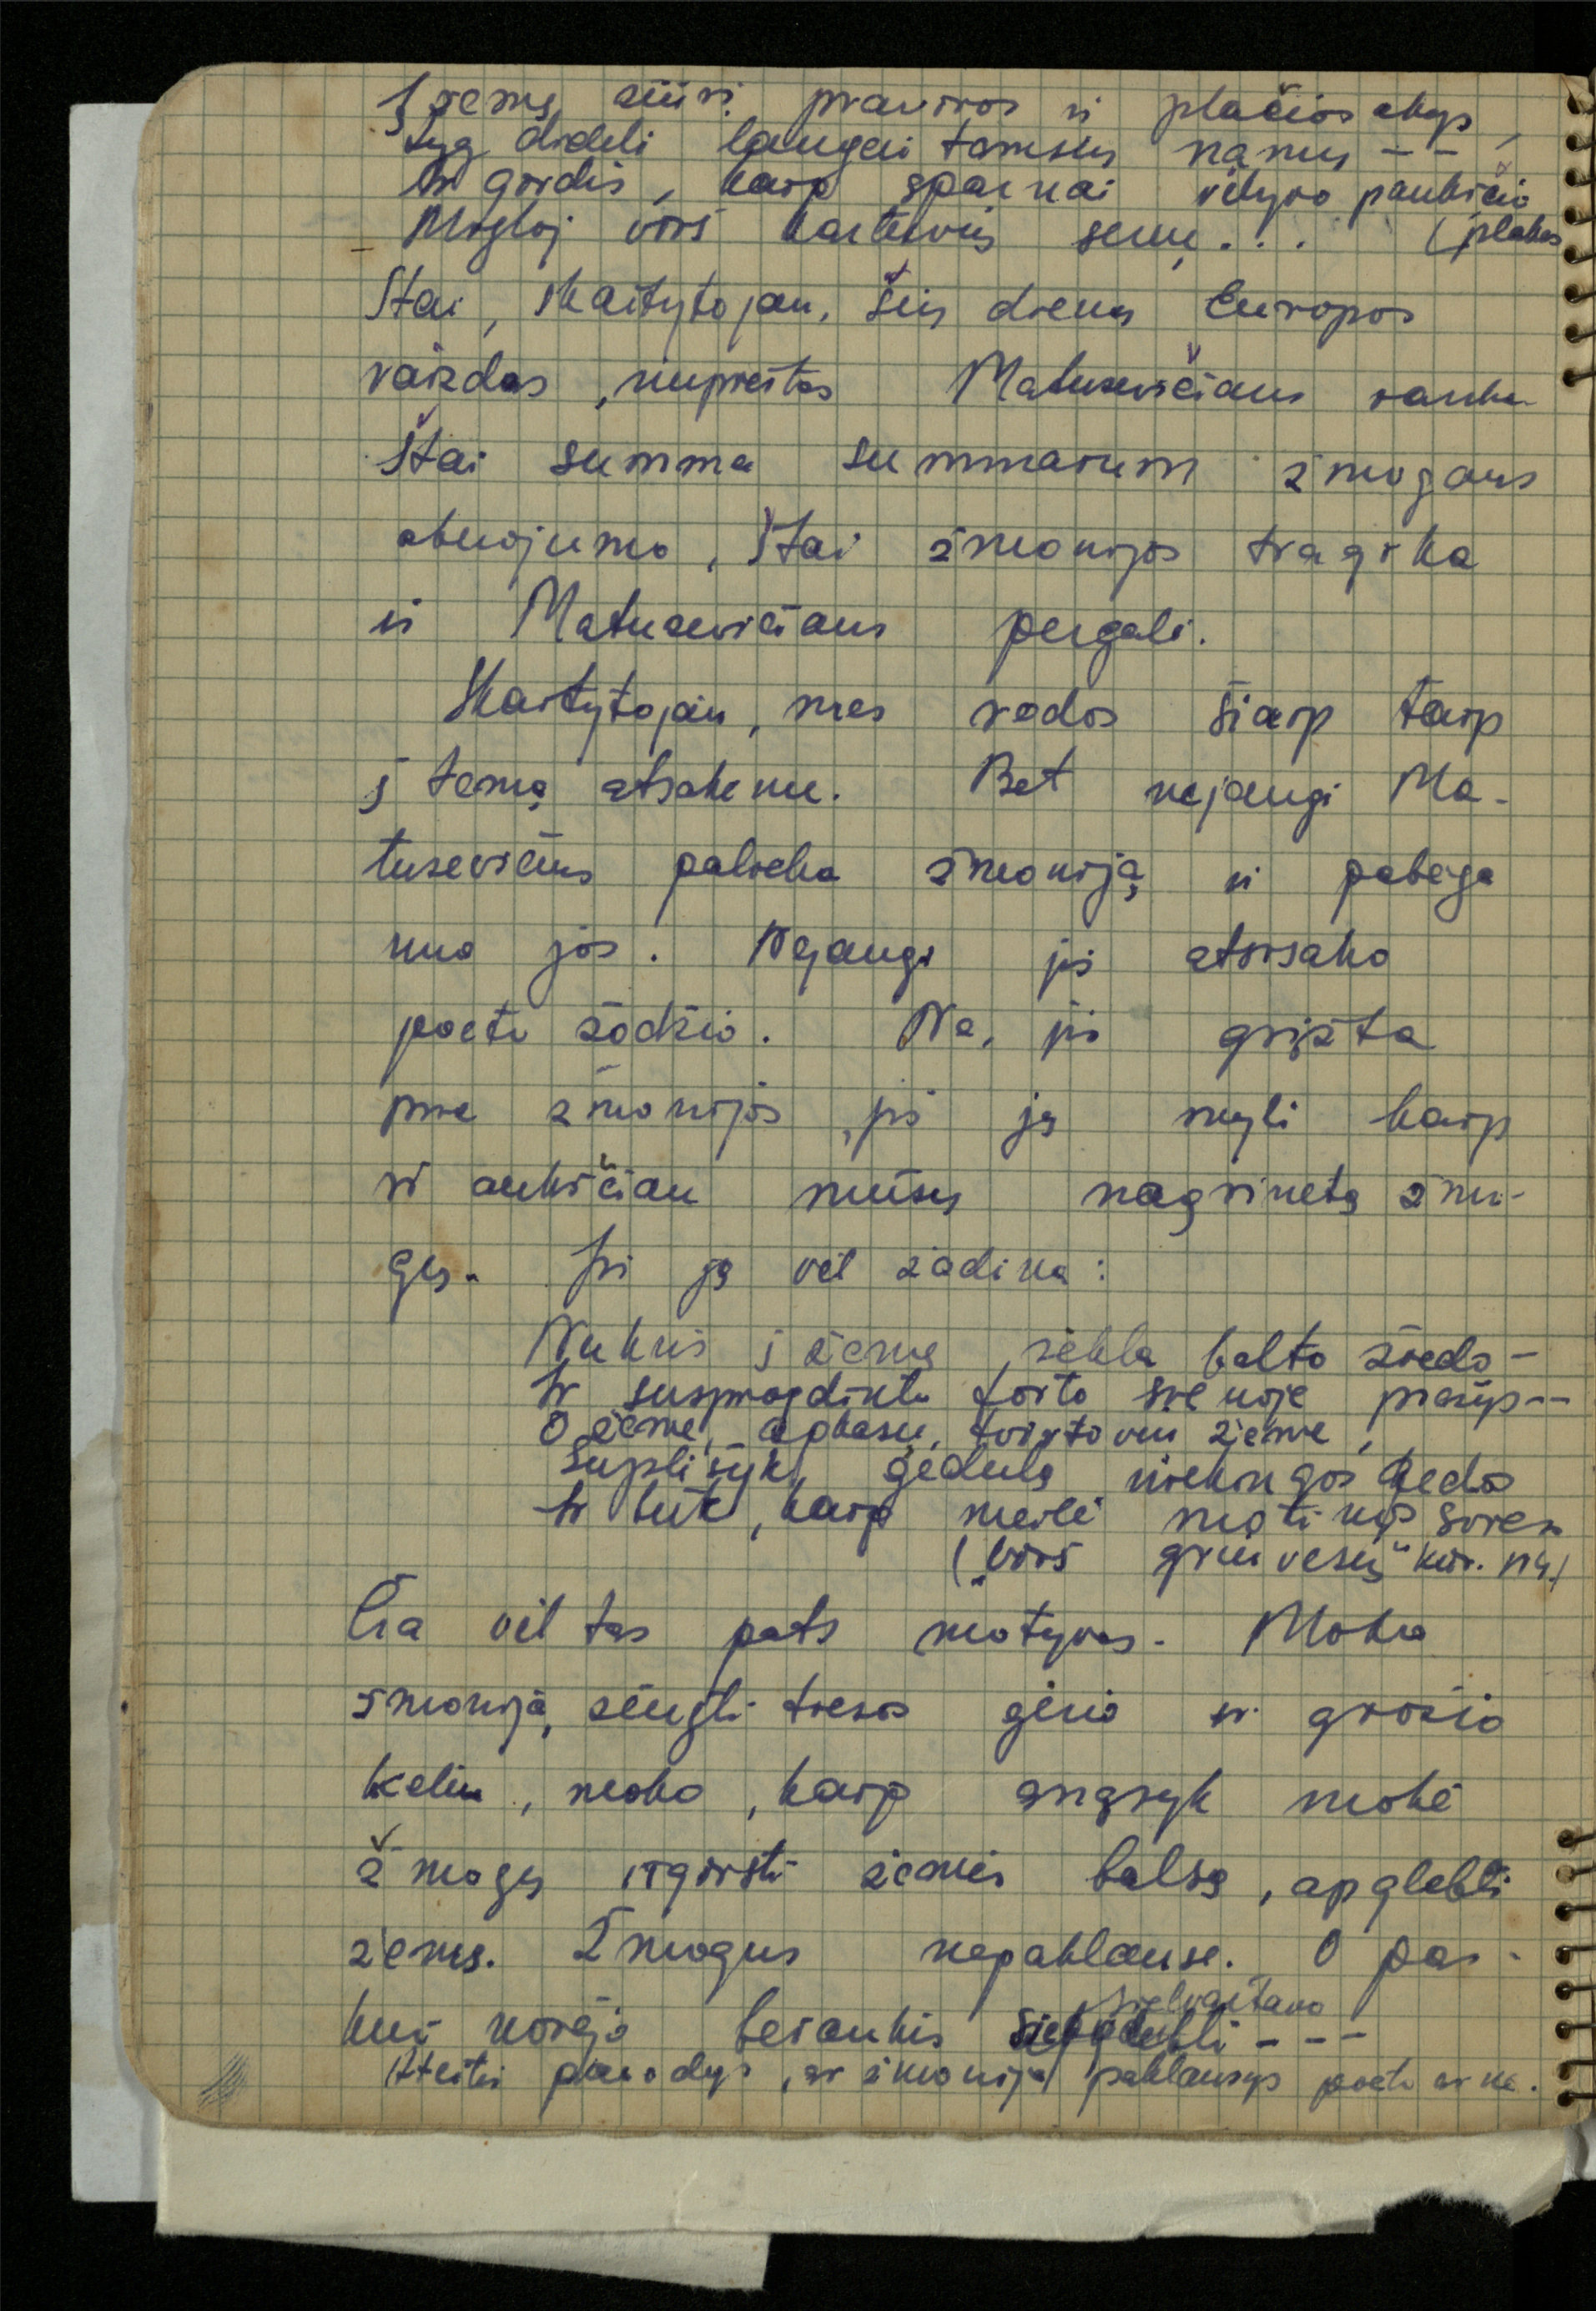 Į žemę žiūri praviros ir plačios akys,
Lyg dideli langai tamsių namų – –
Ir girdis, kaip sparnai vėlyvo paukščio
Migloj virš kartuvių senų... (plakas
Štai, skaitytojau, šių dienų Europos
vaizdas, nupieštas Matusevičiaus ranka
Štai summa summarum žmogaus
abuojumo, štai žmonijos tragika
ir Matusevičiaus pergalė.
Skaitytojau, mes rodos šiaip taip
į temą atsakėme. Bet nejaugi Ma-
tusevičius palieka žmoniją ir pabėga
nuo jos. Nejaugi jis atsisako
poeto žodžio. Ne, jis grįžta
prie žmonijos, jis ją myli kaip
ir aukščiau mūsų nagrinėtą žmo-
gų. Jis ją vėl žadina:
Nukris į žemę sėkla balto žiedo –
Ir susprogdinta tarto sienoje prasips – –
O žeme, apkasų, tvirtovių žeme,
Suplėšyk gedulą niekingos gėdos
Ir būk, kaip meilė motinos svies
("Virš griuvėsių" kūr. py.)
Čia vėl tas pats motyvas. Moko
žmoniją žengti tiesos gėrio ir grožio
keliu, moko, kaip anąsyk mokė
žmogų išgirsti žemės balsą, apglėbti
žemę. Žmogus nepaklausė. O pas-
kui norėjo beraukis sielvartavo – – –
Ateitis parodys, ar žmonija paklausys poeto ar ne.